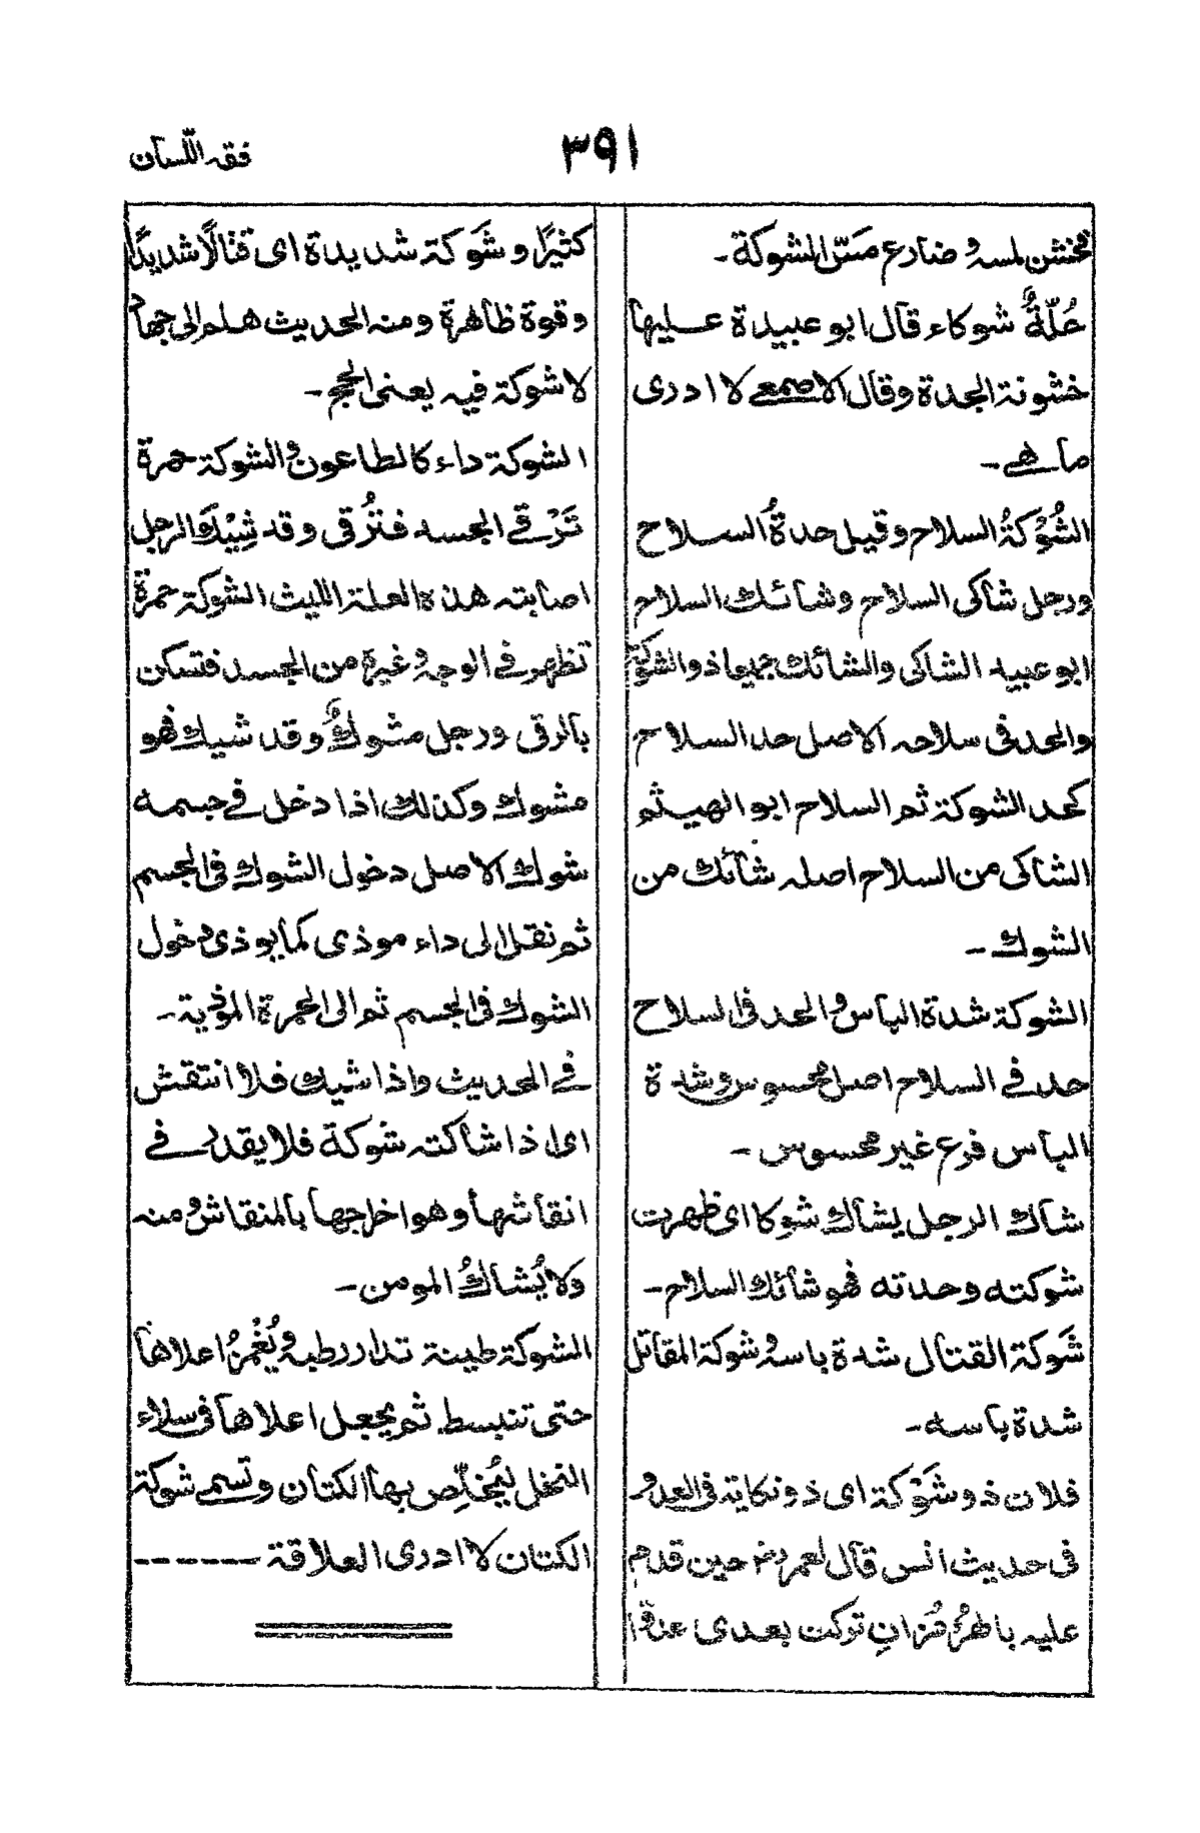 ٣٩١
فقه اللّسان
فخشن لمسه و ضارع مسّ الشوكة -
حُلّةٌ شوكاء قال ابو عبيدة عليها
خشونة الجدة وقال الاصمعے لا ادرى
ما هے -
الشَّوْكَةُ السلاح وقيل حدةُ السلاح
ورجل شاكى السلاح وشائك السلاح
ابو عبيد الشاكى والشائك جميعا ذو الشوكة
والحد فى سلاحه الاصل حد السلاح
كحد الشوكة ثم السلاح ابو الهيثم
الشاكى من السلاح اصله شائك من
الشوك -
الشوكة شدة الباس و الحد فى السلاح
حد فے السلاح اصل محسوس و شدة
الباس فرع غير محسوس -
شاك الرجل يشاك شوكا اى ظهرت
شوكته وحدته فهو شائك السلاح -
شَوكة القتال شدة باسه و شوكة المقاتل
شدة باسه -
فلان ذو شَوْكة اى ذو نكاية فى العدو -
فى حديث انس قال لعمر رضہ حين قدم
عليه بالهُرْمُزانِ تركت بعدى عدوًّا
كثيرًا و شَوكة شديدة اى قتالًا شديدًا
وقوة ظاهرة ومنه الحديث هلم الى جهاد
لا شوكة فيه يعنى الحج -
الشوكة داء كالطاعون و الشوكة حمرة
تَرْقے الجسد فتُرقى وقد شِيْكَ الرجل
اصابته هذه العلة الليث الشوكة حمرة
تظهر فے الوجه و غيره من الجسد فتسكن
بالرقى ورجل مشوكٌ وقد شيك فهو
مشوك وكذلك اذا دخل فے جسمه
شوك الاصل دخول الشوك فى الجسم
ثم نقل الى داء موذى كما يوذى دخول
الشوك فى الجسم ثم الى الحمرة الموذية -
فے الحديث واذا شيك فلا انتقش
اى اذا شاكته شوكة فلا يقدر فے
انقاشها وهو اخراجها بالمنقاش و منه
ولا يُشاكُ المومن -
الشوكة طينة تدار رطبة و يُغْمَزُ اعلاها
حتى تنبسط ثم يجعل اعلاها فى سلاء
النخل ليُخلّص بها الكتان وتسمے شوكة
الكتان لا ادرى العلاقة ------